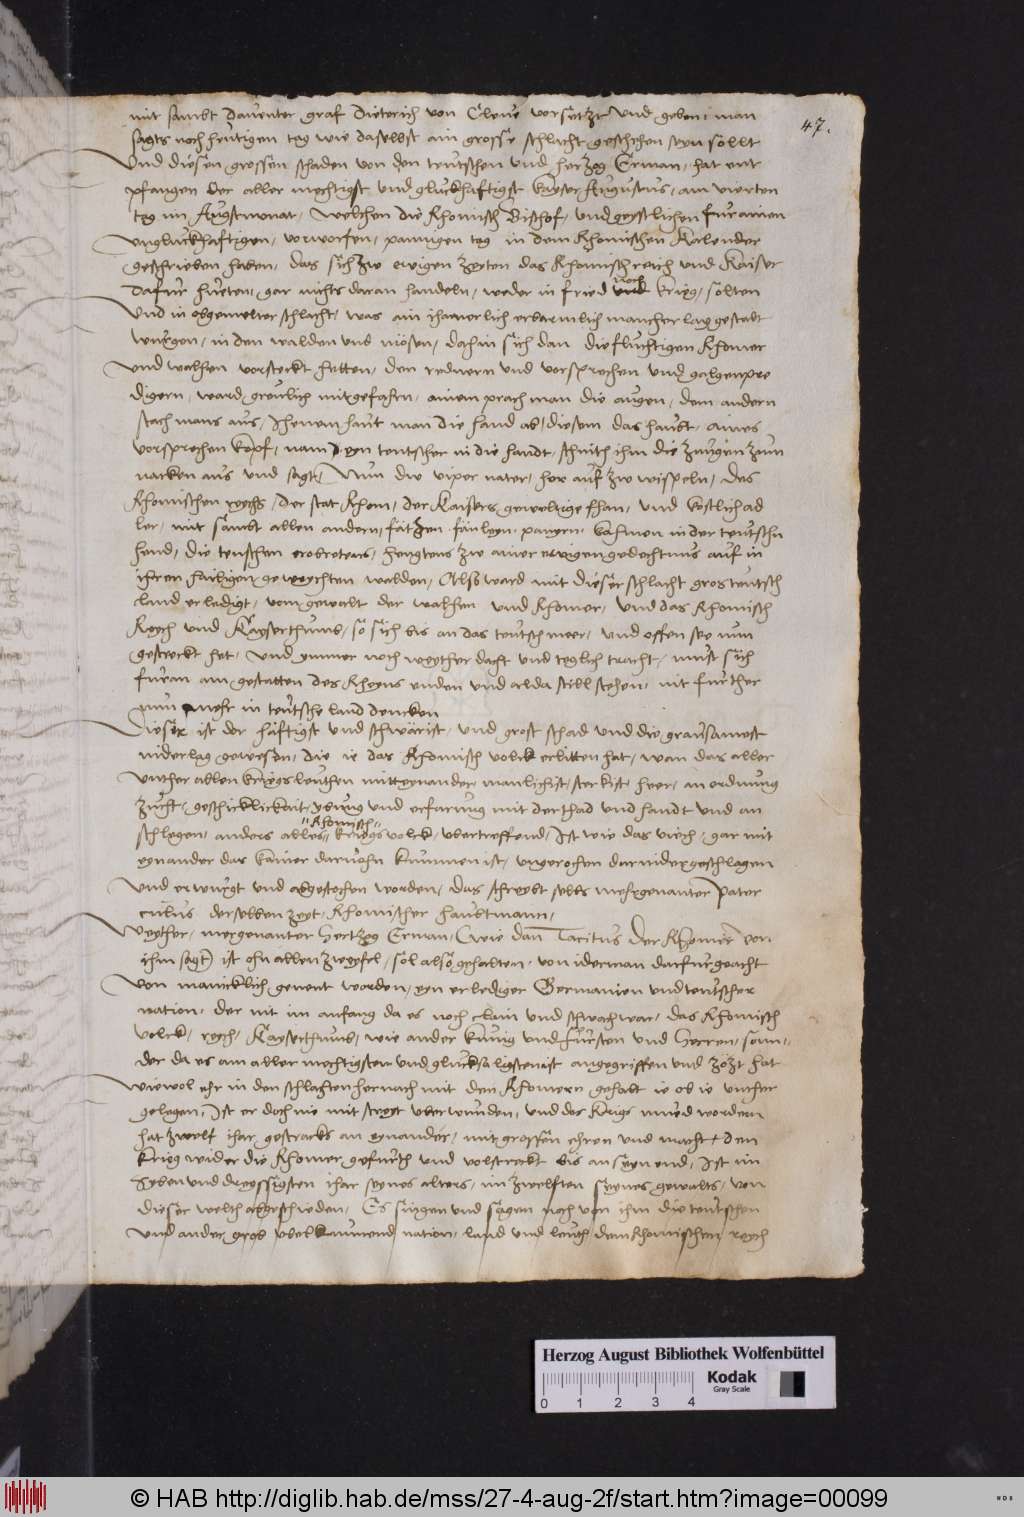 47.
mit sambt dauenter graf Dieterich von Cleue versetzt Und geben: man
sagts noch heutigen tag wie daselbst ain grosse schlacht geschehen seyn sollt
Und diesen grossen schaden von den teutschen und herzog Erman, hat ent
pfangen der aller mechtigist und gluckhaftigist kayser Augustus, am vierten
tag im Augstmonat, welchen die Rhomisch Bischof, und geystlichen fur ainen
ungluckhaftigen, vorworfen, paunigen tag in dem Rhomischen Kalender
geschrieben haben, das sich zw ewigen zeyten das Rhomisch reich und Kaiser
dafur hueten, gar nichts daran handeln, weder in fried noch krieg, solten
Und in obgemelter schlacht, was ain ihamerlich erbarmlich mancherlay gestalt
wurgen, in den walden und mösen, dahin sich dan die fluchtigen Rhomer
und walhen versteckt hetten, den rednern und vorsprechen und galgenpre
digern, ward greulich mitgefahrn, ainem prach man die augen, dem andern
stach mans aus, Ihenem haut man die hand ab, diesem das haubt, aines
vorsprechen kopf, nam eyn teutscher in die handt, schnith ihm die zungen zum
nacken aus und sagt, Nun die viper nater, hor auf zw wispeln, Des
Rhomischen reychs, der stat Rhom, der Kaisers gewaltige fhan, und kostlich ad
ler, mit sambt allen andern, fätzen fänleyn, panyrn, kahmen in der teutschn
hend, die teutschen eroberetens, hengtens zw ainer ewigen gedechtnus auf in
ihren hailigen geweychten walden, Also ward mit dieser schlacht gros teutsch
land erledigt, vom gewalt der walhen und Rhomer, und das Rhomisch
Reych und Kayserthumb, so sich bis an das teutsch meer, und offen see nun
gestreckt het, und ymmer noch weyther dacht und teglich tracht, must sich
furan am gestatten des Rheyns enden und alda still stehen, nit further
nun mehr in teutsche land dencken
Dieser ist der häftigst und schwärist, und grost schad und die grausamest
niderlag gewesen, die ie das Rhomisch volck erlitten hat, wan das aller
unther allen kriegsleuthen mitteynander manlichist, sterkist heer, an ordnung
zucht, geschicklickait, ybung und erfarung mit der thad und handt und an
schlegen, anders alles "Rhomisch" kriegsvolck, ubertreffend, Ist wie das viech, gar mit
eynander das kainer daruohn kummen ist, ungerochen darnidergeschlagen
und erwurgt und abgestochen worden, das schreybt selbs mehrgenanter Pater
culus derselben zeyt, Rhomischer haubtmann,
Weyther, mergenanter Hertzog Erman, (wie dan Tacitus der Rhomer von
ihm sagt) ist ohn allen zweyfel, sol also gehalten, von iderman darfur geacht
von manicklich genent worden, eyn erlediger Germanien und teutscher
nation, der nit im anfang da es noch clain und schwach war, das Rhomisch
volck, reych, Kayserthumb, wie ander kunig und fursten und Herren, sonn,
der da es am aller mechtigsten und glucksaligsten ist angegriffen und pöst hat
wiewol ehr in den schlachten hernach mit den Rhomern gehabt ie ob ie unther
gelegen, Ist er doch nie mit streyt uberwunden, und des kriegs mued worden
hat zwelf ihar gestracks an eynander, mit grossen ehren und macht, den
krieg wider die Rhomer gefurth und volstreckt bis an seyn end, Ist im
syben und dreyssigsten ihar seynes alters, im zwelften seynes gewalts, von
dieser welth abgeschieden, Es singen und sagen noch von ihm die teutschen
und ander grob unbekannend nation, land und leuth dem Rhomischen reych
Herzog August Bibliothek Wolfenbüttel
Kodak
Gray Scale
0 1 2 3 4
© HAB http://diglib.hab.de/mss/27-4-aug-2f/start.htm?image=00099